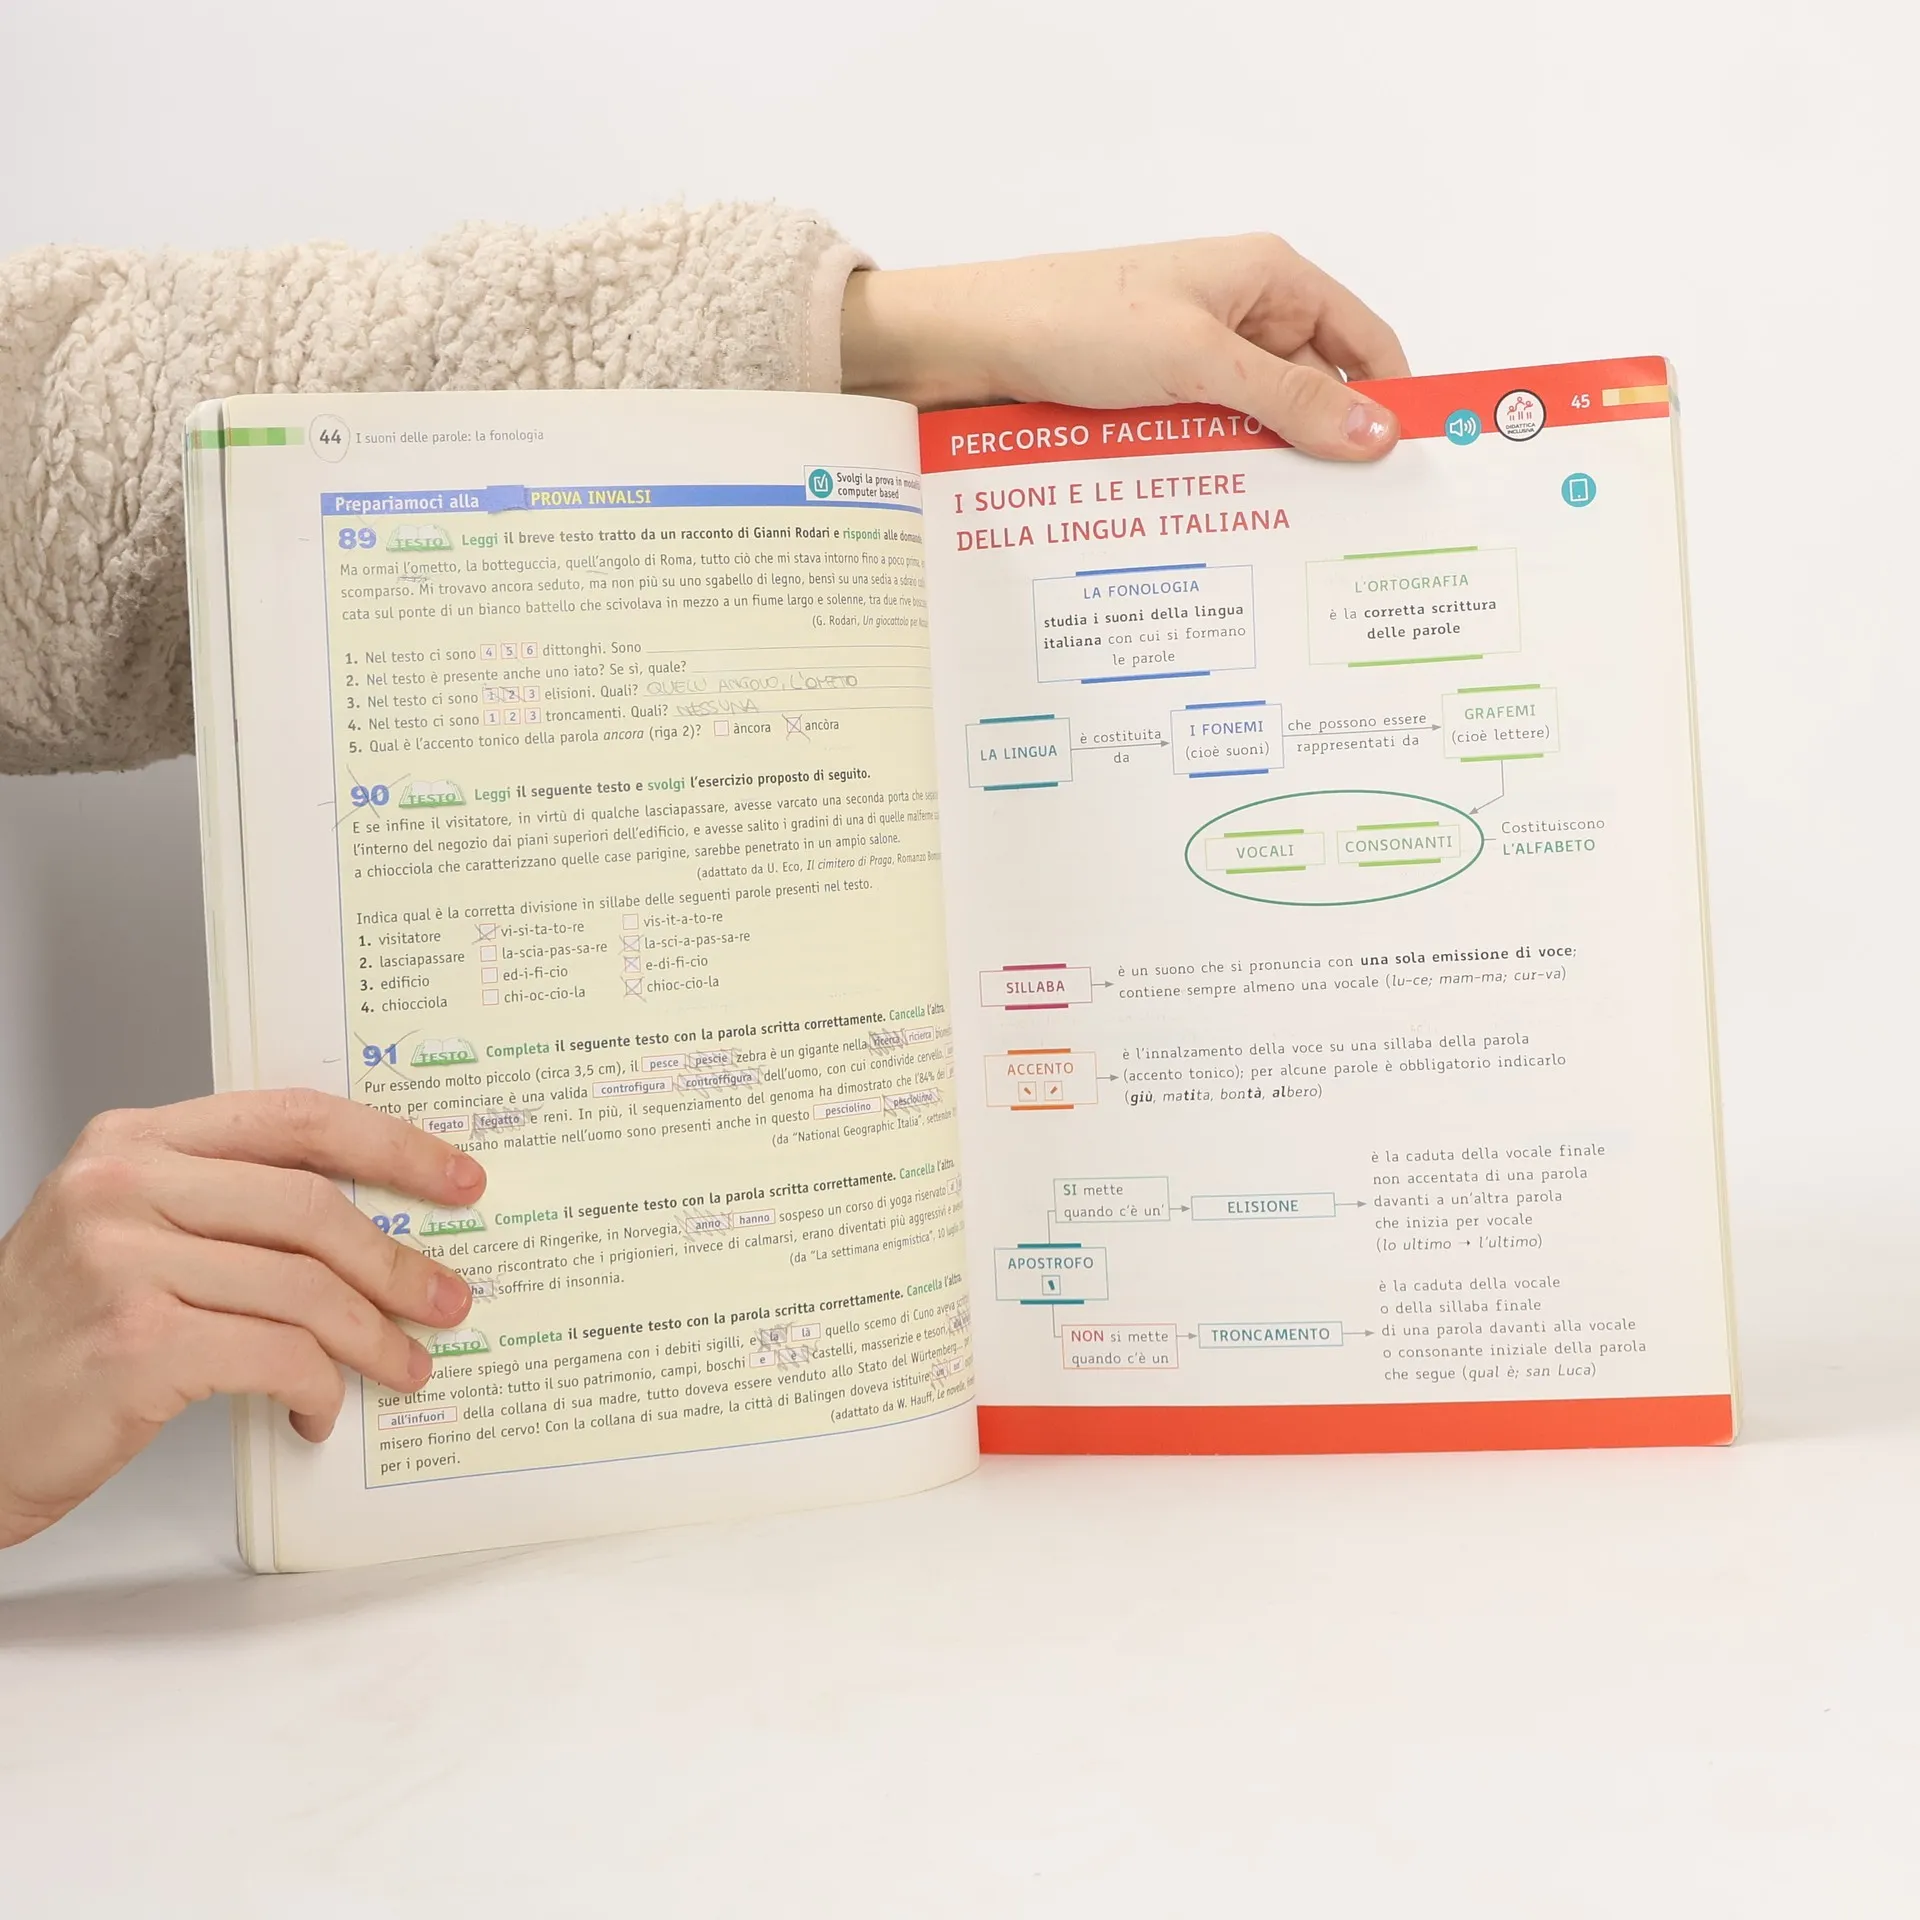 44 I suoni delle parole: la fonologia
Prepariamoci alla PROVA INVALSI
Svolgi la prova in
computer based
89 TESTO Leggi il breve testo tratto da un racconto di Gianni Rodari e rispondi alle
Ma ormai l'ometto, la botteguccia, quell'angolo di Roma, tutto ciò che mi stava intorno fino a poco prima,
scomparso. Mi trovavo ancora seduto, ma non più su uno sgabello di legno, bensì su una sedia a sdraio
cata sul ponte di un bianco battello che scivolava in mezzo a un fiume largo e solenne, tra due rive
(G. Rodari, Un giocattolo per
1. Nel testo ci sono 4 5 6 dittonghi. Sono
2. Nel testo è presente anche uno iato? Se sì, quale?
3. Nel testo ci sono 1 2 3 elisioni. Quali? QUELL ANGOLO, L'OMETO
4. Nel testo ci sono 1 2 3 troncamenti. Quali? NESSUNA
5. Qual è l'accento tonico della parola ancora (riga 2)? àncora ancòra
90 TESTO Leggi il seguente testo e svolgi l'esercizio proposto di seguito.
E se infine il visitatore, in virtù di qualche lasciapassare, avesse varcato una seconda porta che
l'interno del negozio dai piani superiori dell'edificio, e avesse salito i gradini di una di quelle malferme
a chiocciola che caratterizzano quelle case parigine, sarebbe penetrato in un ampio salone.
(adattato da U. Eco, Il cimitero di Praga, Romanzo
Indica qual è la corretta divisione in sillabe delle seguenti parole presenti nel testo.
1. visitatore vi-si-ta-to-re vis-it-a-to-re
2. lasciapassare la-scia-pas-sa-re la-sci-a-pas-sa-re
3. edificio ed-i-fi-cio e-di-fi-cio
4. chiocciola chi-oc-cio-la chioc-cio-la
91 TESTO Completa il seguente testo con la parola scritta correttamente. Cancella l'altra.
Pur essendo molto piccolo (circa 3,5 cm), il pesce pescie zebra è un gigante nella ricerca ricierca
Tanto per cominciare è una valida controfigura controffigura dell'uomo, con cui condivide cervello,
fegato fegatto e reni. In più, il sequenziamento del genoma ha dimostrato che l'84% dei
ausano malattie nell'uomo sono presenti anche in questo pesciolino pesciolinno
(da "National Geographic Italia", settembre
92 TESTO Completa il seguente testo con la parola scritta correttamente. Cancella l'altra.
rità del carcere di Ringerike, in Norvegia, anno hanno sospeso un corso di yoga riservato
evano riscontrato che i prigionieri, invece di calmarsi, erano diventati più aggressivi e
ha soffrire di insonnia.
(da "La settimana enigmistica", 10 luglio
TESTO Completa il seguente testo con la parola scritta correttamente. Cancella l'altra.
valiere spiegò una pergamena con i debiti sigilli, e la là quello scemo di Cuno aveva
sue ultime volontà: tutto il suo patrimonio, campi, boschi e è castelli, masserizie e tesori,
all'infuori della collana di sua madre, tutto doveva essere venduto allo Stato del Würtemberg...
misero fiorino del cervo! Con la collana di sua madre, la città di Balingen doveva istituire
per i poveri.
(adattato da W. Hauff, Le novelle,
PERCORSO FACILITATO
DIDATTICA
INCLUSIVA
45
I SUONI E LE LETTERE
DELLA LINGUA ITALIANA
LA FONOLOGIA
studia i suoni della lingua
italiana con cui si formano
le parole
L'ORTOGRAFIA
è la corretta scrittura
delle parole
LA LINGUA
è costituita
da
I FONEMI
(cioè suoni)
che possono essere
rappresentati da
GRAFEMI
(cioè lettere)
VOCALI
CONSONANTI
Costituiscono
L'ALFABETO
SILLABA
è un suono che si pronuncia con una sola emissione di voce;
contiene sempre almeno una vocale (lu-ce; mam-ma; cur-va)
ACCENTO
è l'innalzamento della voce su una sillaba della parola
(accento tonico); per alcune parole è obbligatorio indicarlo
(giù, matita, bontà, albero)
APOSTROFO
SI mette
quando c'è un'
ELISIONE
è la caduta della vocale finale
non accentata di una parola
davanti a un'altra parola
che inizia per vocale
(lo ultimo → l'ultimo)
NON si mette
quando c'è un
TRONCAMENTO
è la caduta della vocale
o della sillaba finale
di una parola davanti alla vocale
o consonante iniziale della parola
che segue (qual è; san Luca)